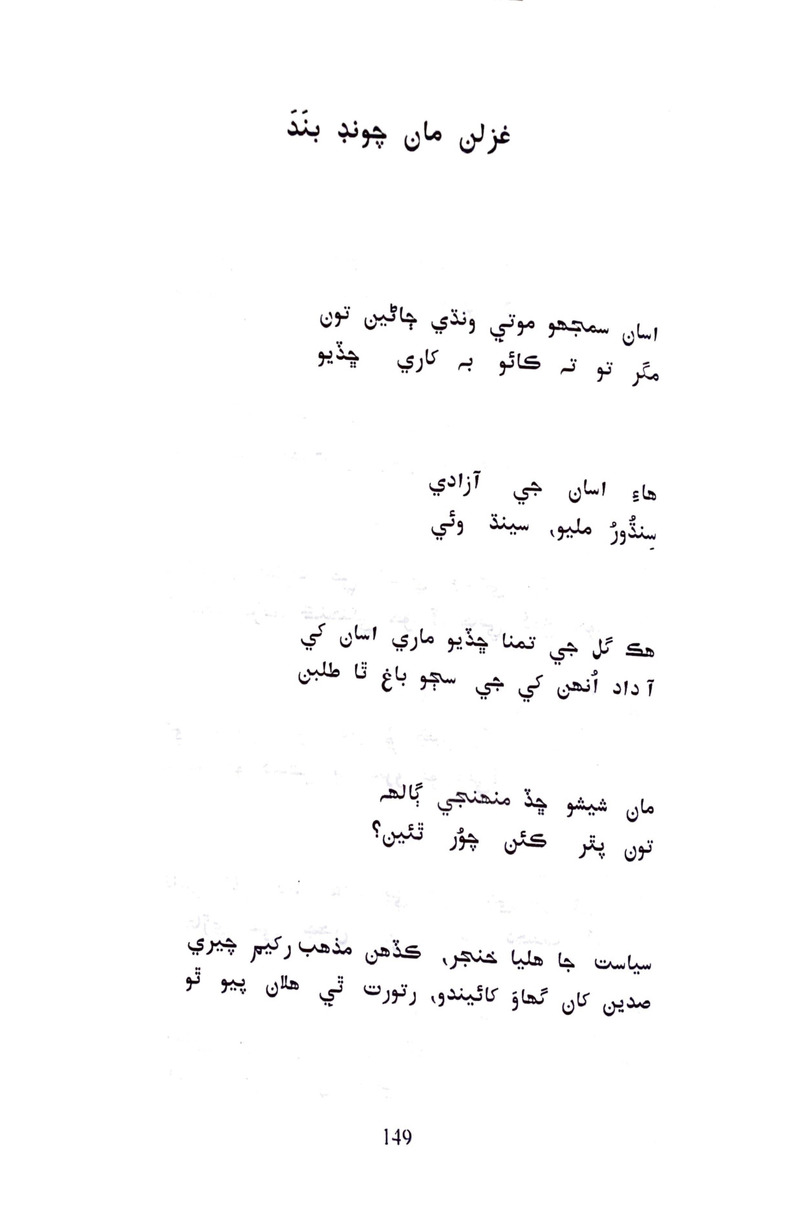 غزلن مان چونڊ بنَدَ
اسان سمجهو موتي ونڌي ڄاڻين تون
مگر تو تہ ڪائو بہ کاري ڇڏيو
هاءِ اسان جي آزادي
سِنڌُورُ مليو، سينڌ وئي
هڪ گل جي تمنا ڇڏيو ماري اسان کي
آ داد اُنهن کي جي سڄو باغ ٿا طلبن
مان شيشو ڇڏ منهنجي ڳالهہ
تون پٿر ڪئن چوُر ٿئين؟
سياست جا هليا خنجر، ڪڏهن مذهب رکيم چيري
صدين کان گهاوَ کائيندو، رتورت ٿي هلان پيو ٿو
149